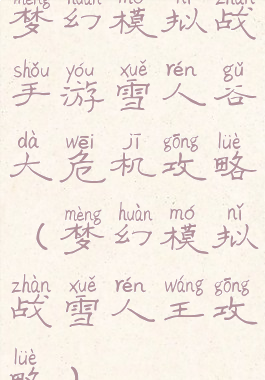 mèng huàn mó nǐ zhàn
梦幻模拟战
shǒu yóu xuě rén gǔ
手游雪人谷
dà wēi jī gōng lüè
大危机攻略
mèng huàn mó nǐ
（梦幻模拟
zhàn xuě rén wáng gōng
战雪人王攻
lüè
略）